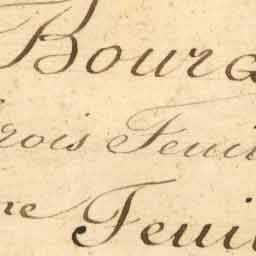 Bourg
trois Feuil
ne Feuil